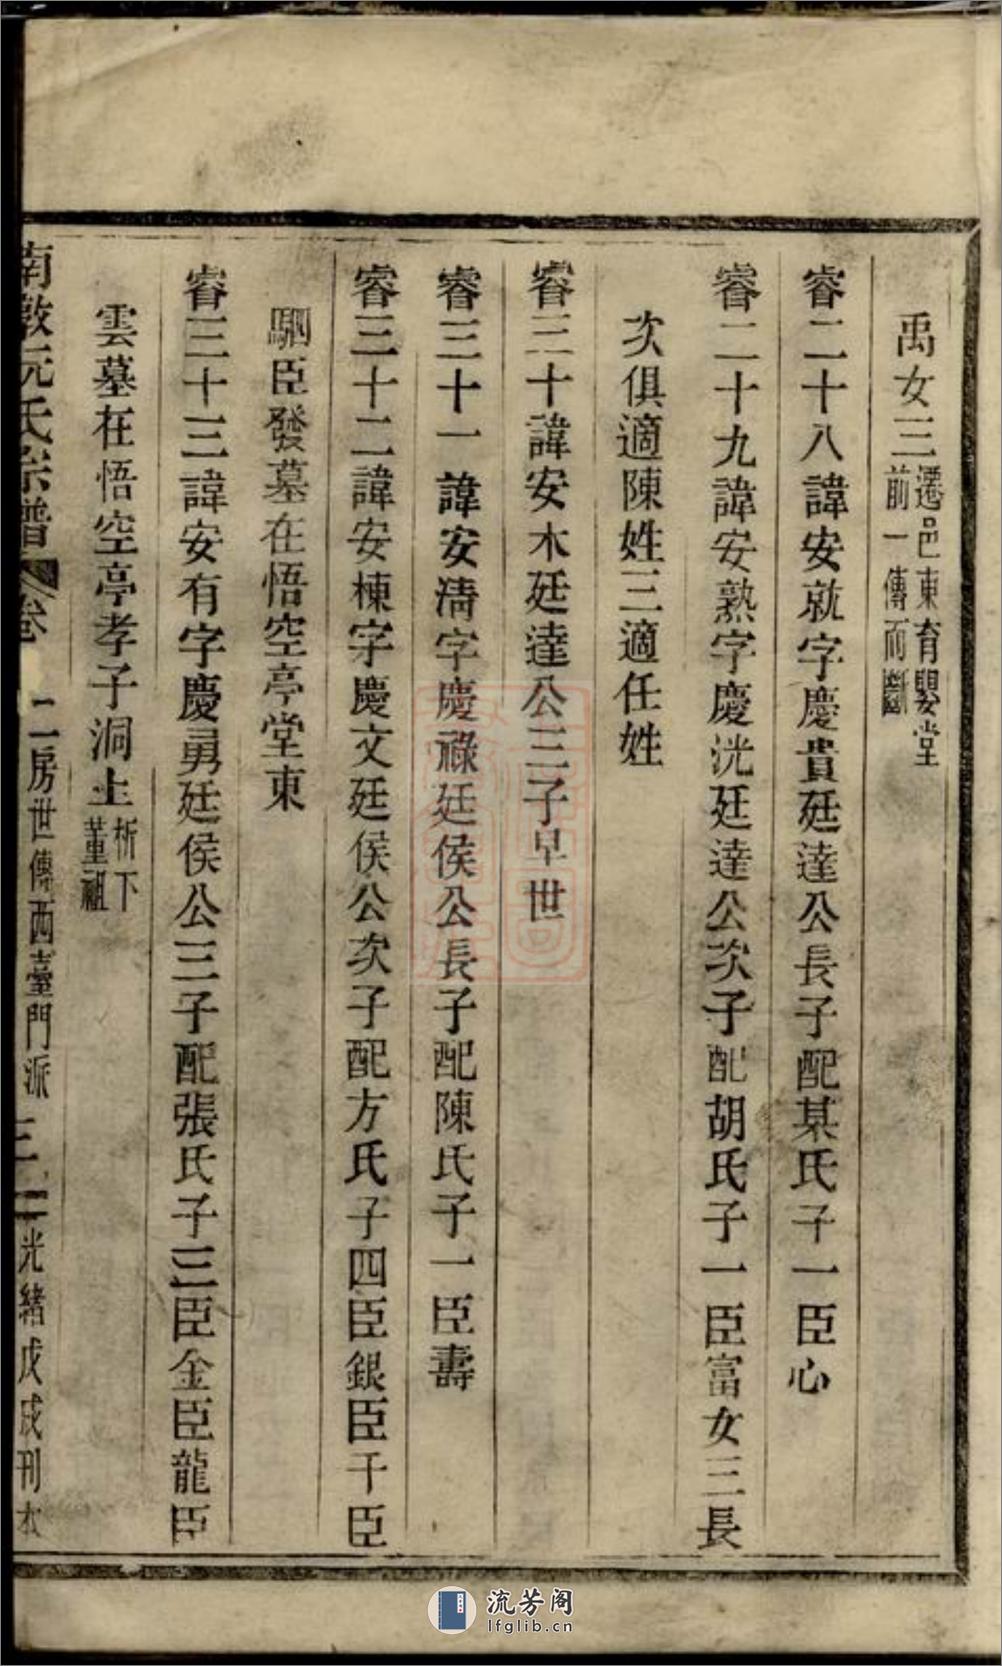 禹女三遷邑東育嬰堂前一傳而斷
睿二十八諱安就字慶貴廷達公長子配某氏子一臣心
睿二十九諱安熟字慶洸廷達公次子配胡氏子一臣富女三長
次俱適陳姓三適任姓
睿三十諱安木廷達公三子早世
睿三十一諱安清字慶祿廷侯公長子配陳氏子一臣壽
睿三十二諱安棟字慶文廷侯公次子配方氏子四臣銀臣千臣
駟臣發墓在悟空亭堂東
睿三十三諱安有字慶勇廷侯公三子配張氏子三臣金臣龍臣
雲墓在悟空亭孝子洞上析下董祖
南敦阮氏宗譜 卷 二房世傳西臺門派 三 光緒戊戌刊本
流芳阁
lfglib.cn